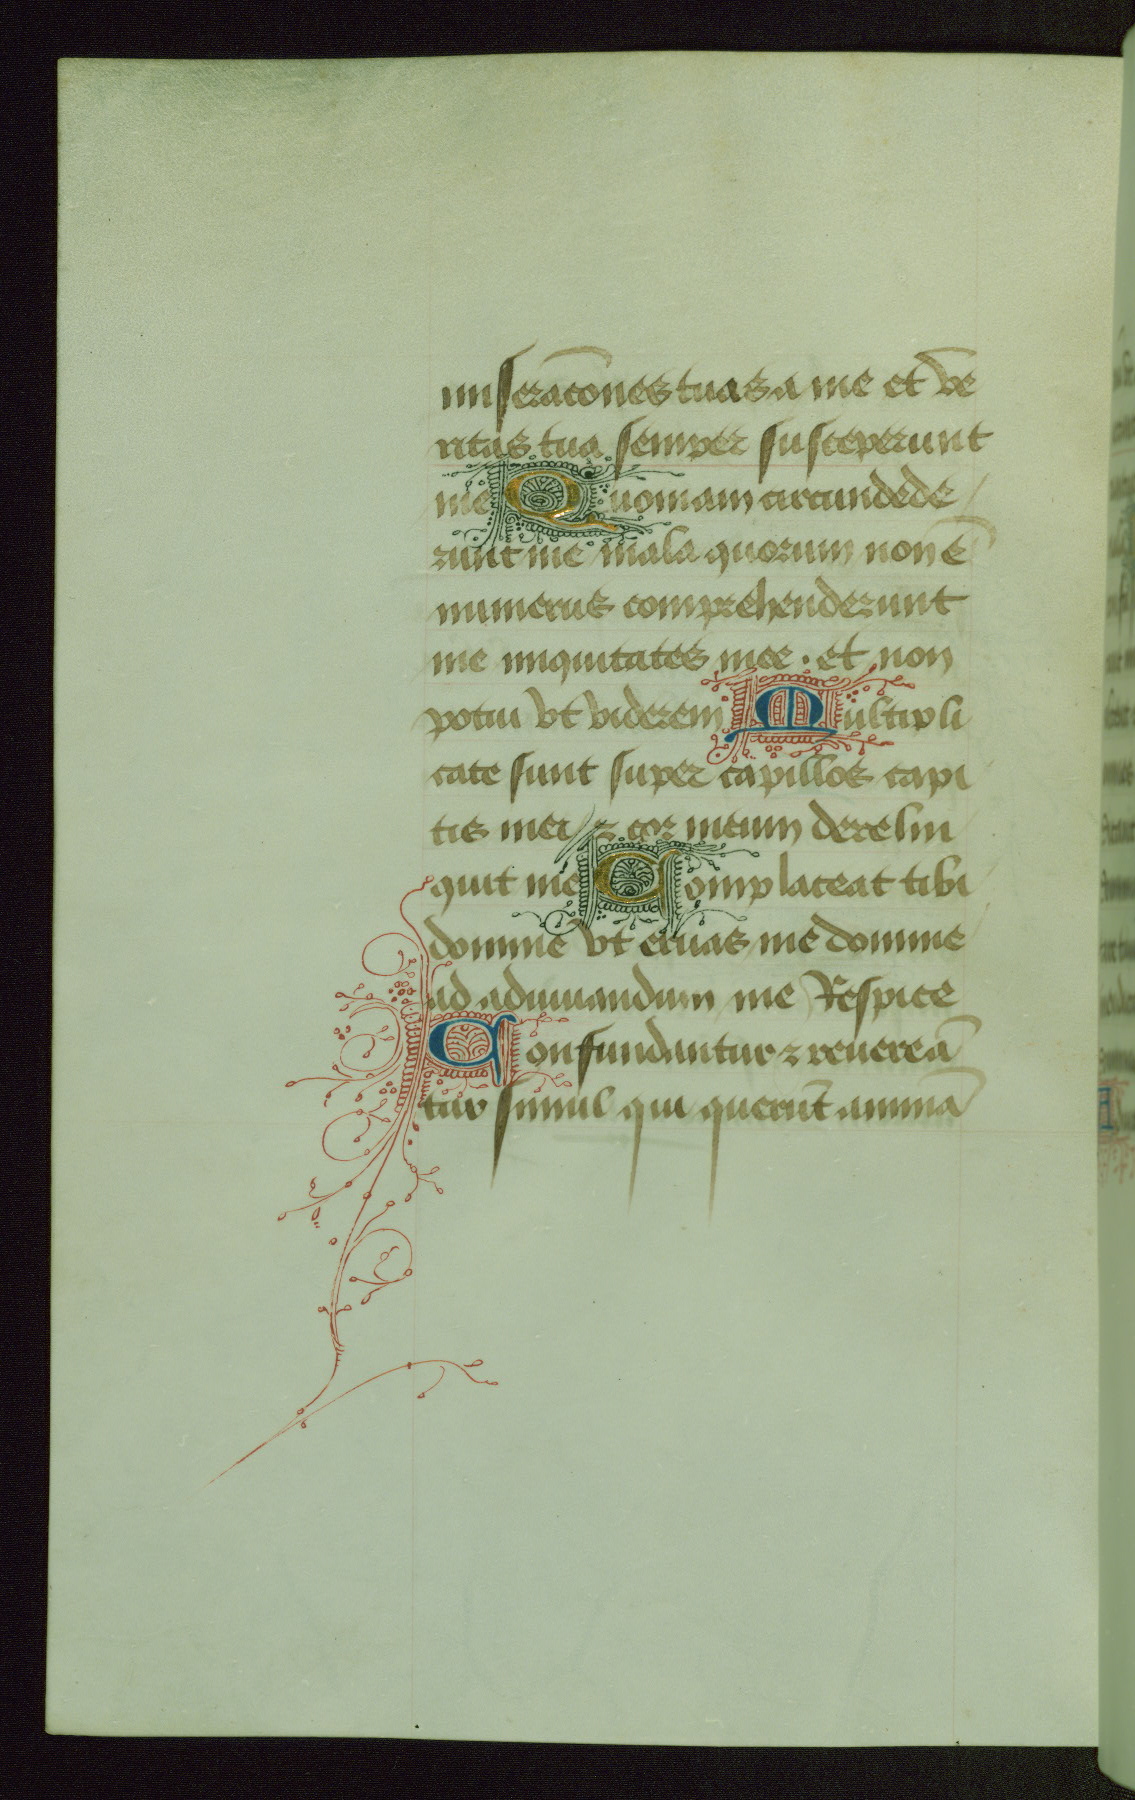 miseracōnes tuas a me et ve
ritas tua semper susceperunt
me Quoniam circundede
runt me mala quorum non ē
numerus comprehenderunt
me iniquitates mee · et non
potui vt viderem Multipli
cate sunt super capillos capi
tis mei / ⁊ cor meum derelin
quit me Complaceat tibi
domine vt eruas me domine
ad adiuuandum me Respice
Confundantur ⁊ reuereā
tur simul qui querūt animā